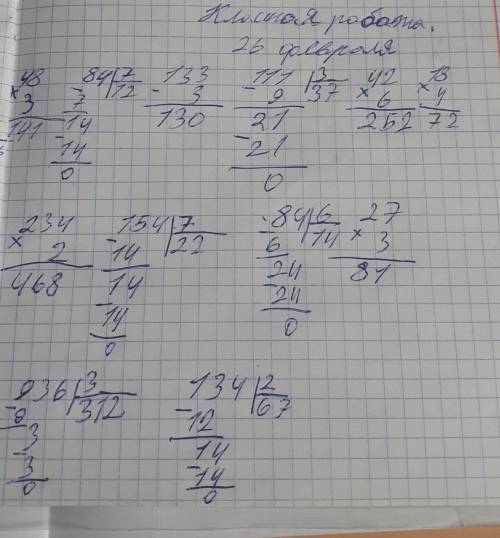 Классная работа.
26 февраля
×48 3 141
-84|7 12 7 -14 14 0
-133 3 130
-111|3 37 9 21 -21 0
×42 6 252
×18 4 72
×234 2 468
-154|7 22 14 -14 14 0
-84|6 14 6 -24 24 0
×27 3 81
-936|3 312 9 -3 3 0
-134|2 67 12 -14 14 0